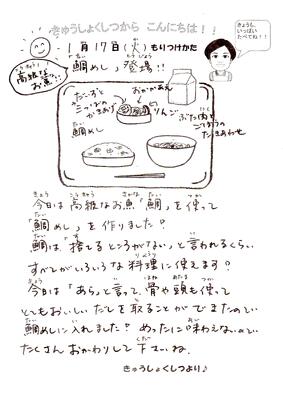 きゅうしょくしつから こんにちは！！
1月17日(火)もりつけかた
きょうも、
いっぱい
たべてね！！
高級な
お魚!!
鯛めし登場!!
だいずと
鯛めし
りんご
ぶた肉と
今日は高級なお魚「鯛」を使って
「鯛めし」を作りました!
鯛は「捨てるところがない」と言われるくらい
すべてがいろいろな料理に使えます!
今日は「あら」と言って、骨や頭も使って
とてもおいしいだしを取ることができたので
鯛めしに入れました! めったに味わえないので
たくさんおかわりして下さいね。
きゅうしょくしつより♪